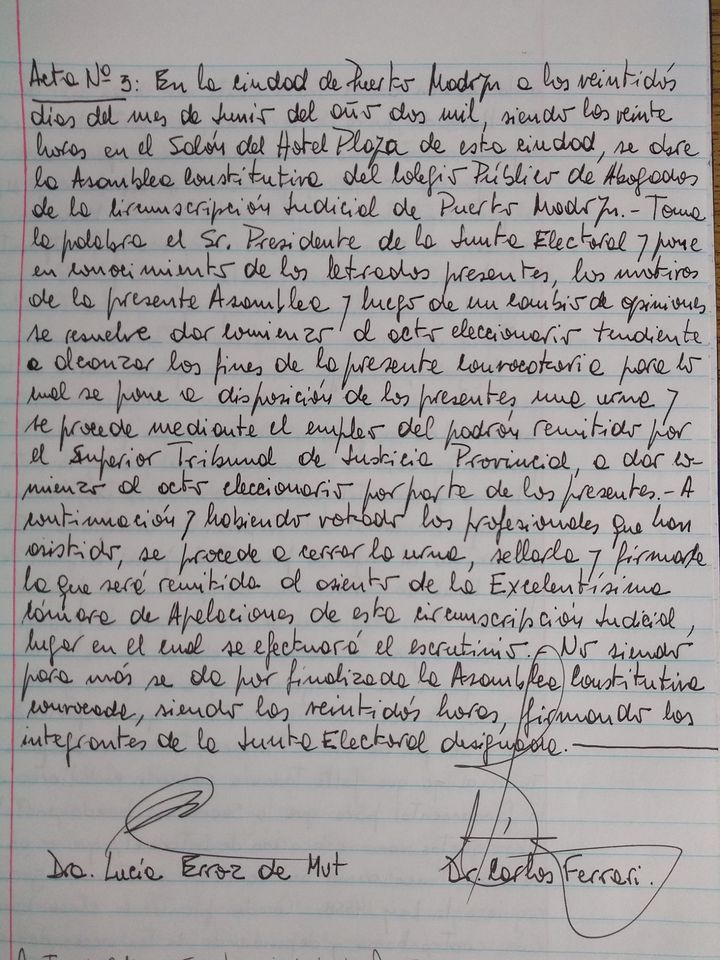 Acta Nº 3: En la ciudad de Puerto Madryn a los veintidós
días del mes de Junio del año dos mil, siendo las veinte
horas en el Salón del Hotel Plaza de esta ciudad, se abre
la Asamblea Constitutiva del Colegio Público de Abogados
de la Circunscripción Judicial de Puerto Madryn.- Toma
la palabra el Sr. Presidente de la Junta Electoral y pone
en conocimiento de los letrados presentes, los motivos
de la presente Asamblea y luego de un cambio de opiniones
se resuelve dar comienzo al acto eleccionario tendiente
a alcanzar los fines de la presente convocatoria para lo
cual se pone a disposición de los presentes una urna y
se procede mediante el empleo del padrón remitido por
el Superior Tribunal de Justicia Provincial, a dar co-
mienzo al acto eleccionario por parte de los presentes.- A
continuación y habiendo votado los profesionales que han
asistido, se procede a cerrar la urna, sellarla y firmarla
la que será remitida al asiento de la Excelentísima
Cámara de Apelaciones de esta Circunscripción Judicial,
lugar en el cual se efectuará el escrutinio.- No siendo
para más se da por finalizada la Asamblea Constitutiva
convocada, siendo las veintidós horas, firmando los
integrantes de la Junta Electoral designada.-
Dra. Lucía Erroz de Mut Dr. Carlos Ferrari.